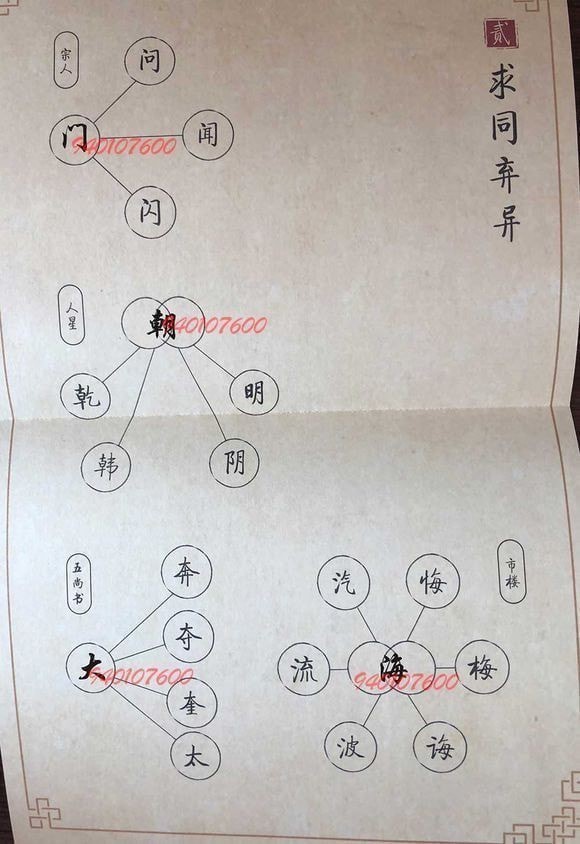 贰
求同弃异
宗人
问
门
闻
闪
940107600
人星
朝
940107600
乾
明
韩
阴
五尚书
奔
夺
大
奎
太
940107600
市楼
汽
悔
流
海
梅
波
诲
940107600